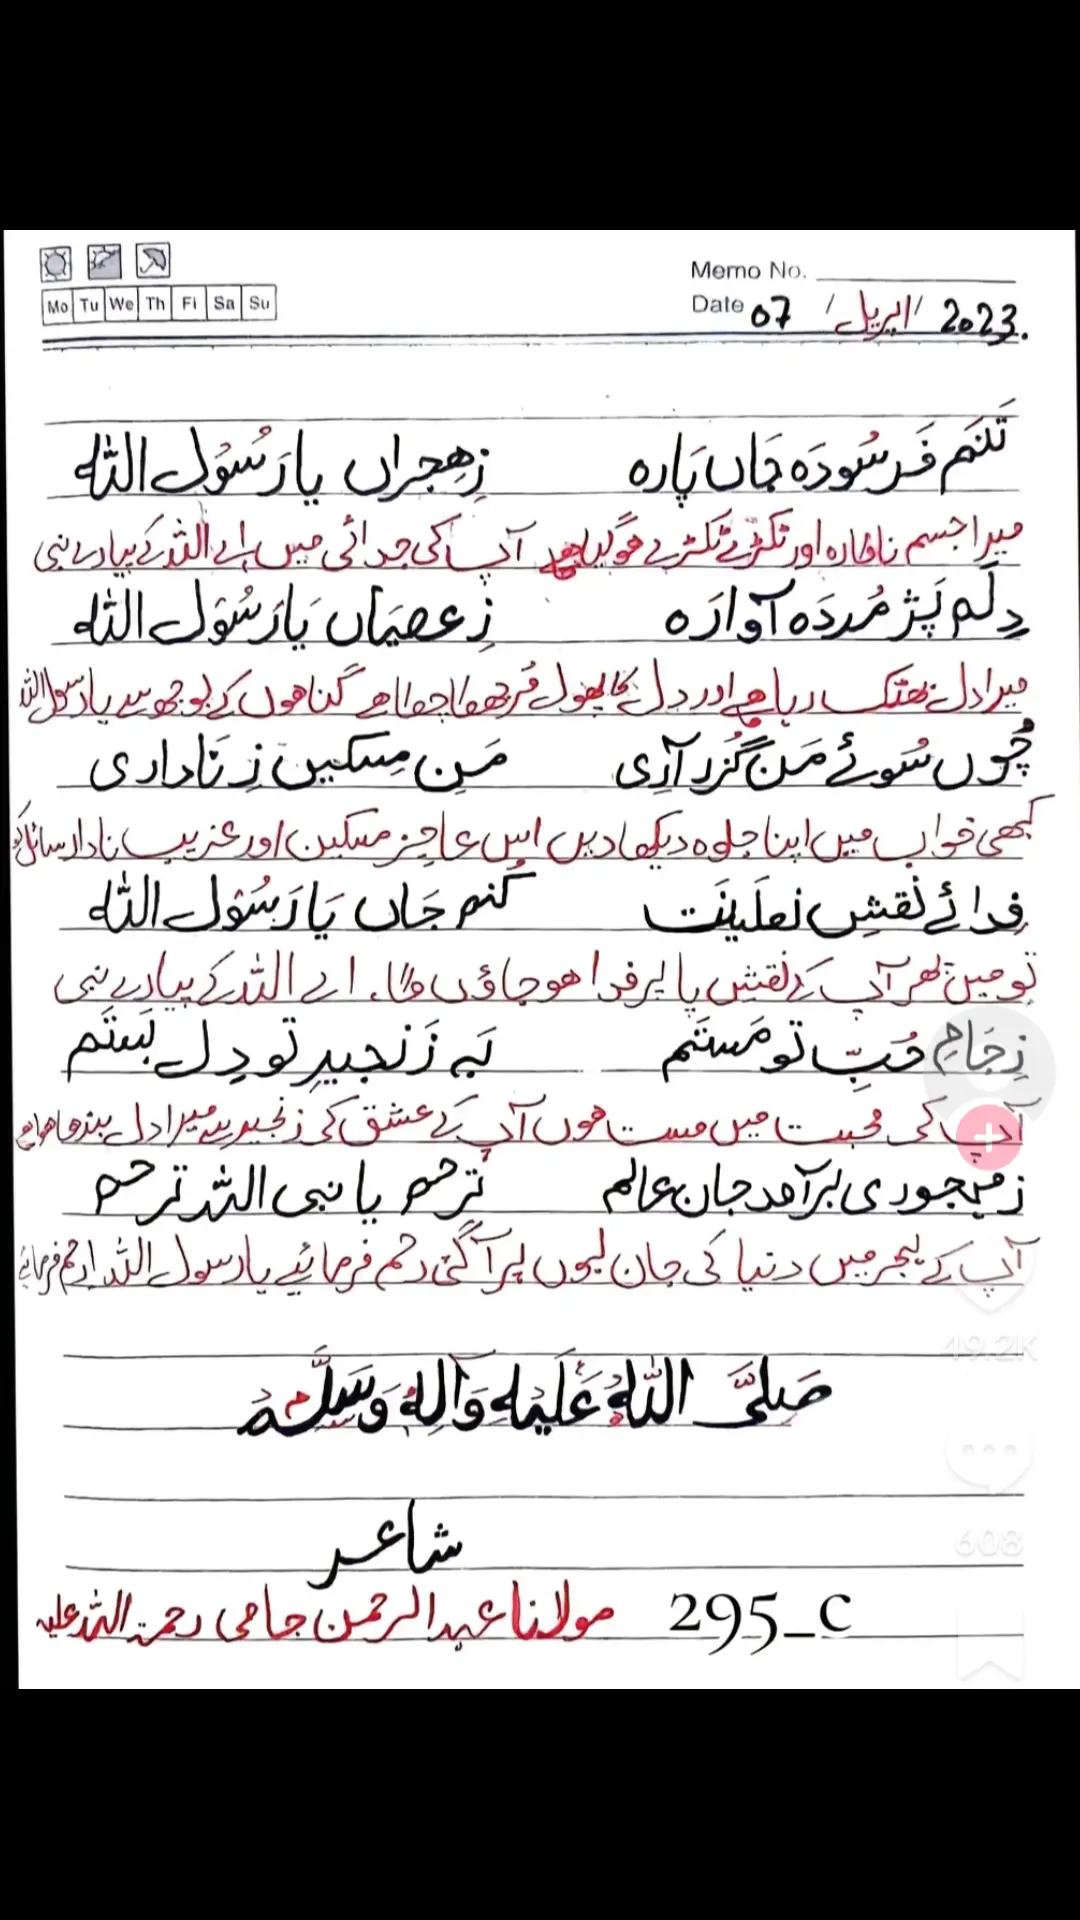 Memo No.
Mo Tu We Th Fi Sa Su
Date 07 / اپریل / 2023.
تَنَم فَرسُودَہ جَاں پَارہ زِھِجراں یا رَسُوَل اللّٰہ
میرا جسم ناکارہ اور ٹکڑے ٹکڑے ھوگیا ھے آپ کی جدائی میں اے اللّٰہ کے پیارے نبی
دِلَم پَژمُردَہ آوارَہ زِعصیَاں یَا رَسُوَل اللّٰہ
میرا دل بھٹک رہا ھے اور دل کا پھول مُرجھا چکا ھے گناھوں کے بوجھ سے یا رسول اللّٰہ
چُوں سُوئے مَن گُزر آرِی مَنِ مِسکیں زِ نَاداری
کبھی خواب میں اپنا جلوہ دیکھا دیں اس عاجز مسکین اور غریب نادار سائل کو
فِدائے نَقشِ نَعلَینَت کُنم جَاں یَا رَسُوَل اللّٰہ
تو میں پھر آپ کے نقش پا پر فدا ھو جاؤں گا۔ اے اللّٰہ کے پیارے نبی
زِجَامِ حُبِّ تو مَستَم بَہ زَنجیرِ تو دِل بَستَم
آپ کی محبت میں مست ھوں آپ کے عشق کی زنجیر سے میرا دل بندھا ھوا ھے
زمہجوری برآمد جان عالم ترحم یا نبی اللّٰہ ترحم
آپ کے ہجر میں دنیا کی جان لبوں پر آ گئی رحم فرمائیے یا رسول اللّٰہ رحم فرمائیے
49.2K
صَلیَّ اللّٰہُ عَلَیہِ وَآلِہٖ وَسَلَّم
608
شاعر
295_C مولانا عبدالرحمن جامی رحمۃ اللّٰہ علیہ